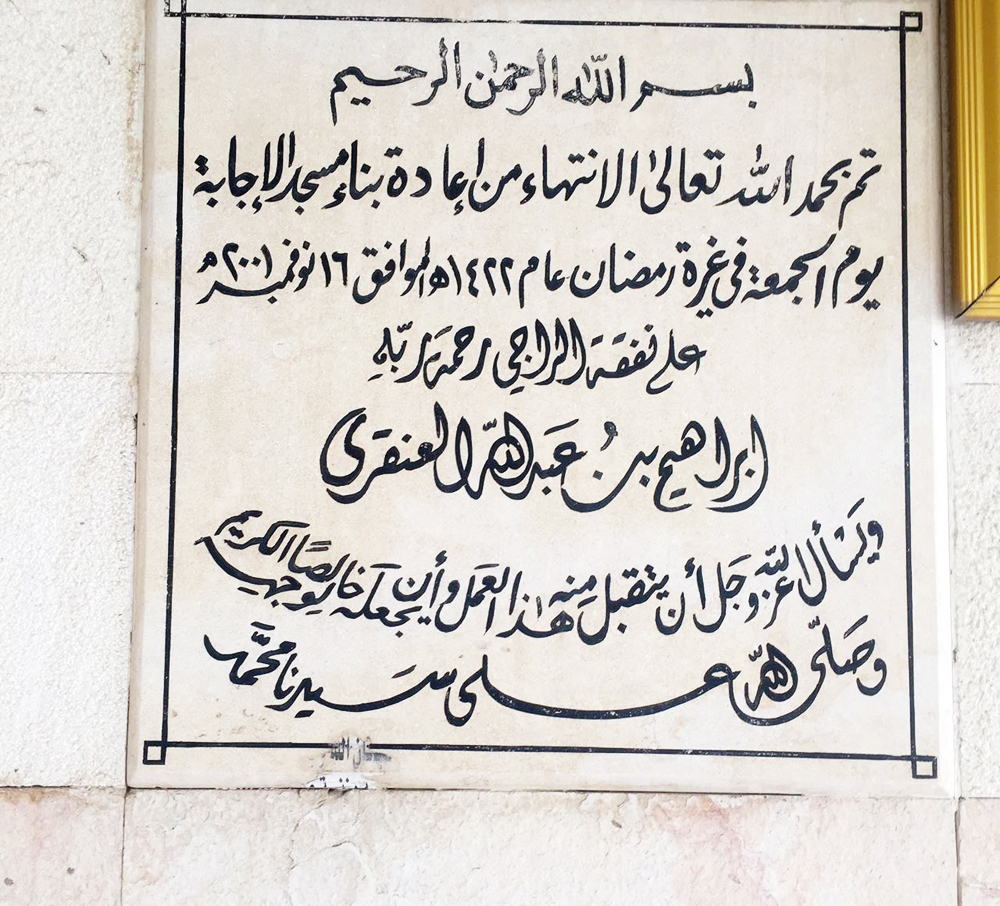 بسم الله الرحمن الرحيم
تم بحمد الله تعالى الانتهاء من إعادة بناء مسجد الإجابة
يوم الجمعة في غرة رمضان عام ١٤٢٢هـ الموافق ١٦ نوفمبر ٢٠٠١م
على نفقة الراجي رحمة ربه
ابراهيم بن عبد الله العنقري
ويسأل الله عز وجل أن يتقبل منه هذا العمل وأن يجعله خالصًا لوجهه الكريم
وصلى الله على سيدنا محمد